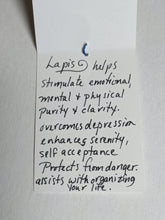 Lapis helps
stimulate emotional,
mental & physical
purity & clarity.
overcomes depression
enhances serenity,
self acceptance.
Protects from danger.
assists with organizing
your life.